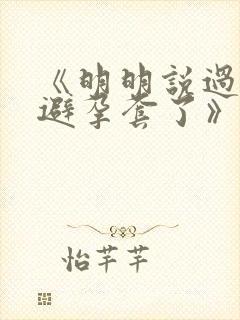 《明明說過
避孕套了》
怡芊芊